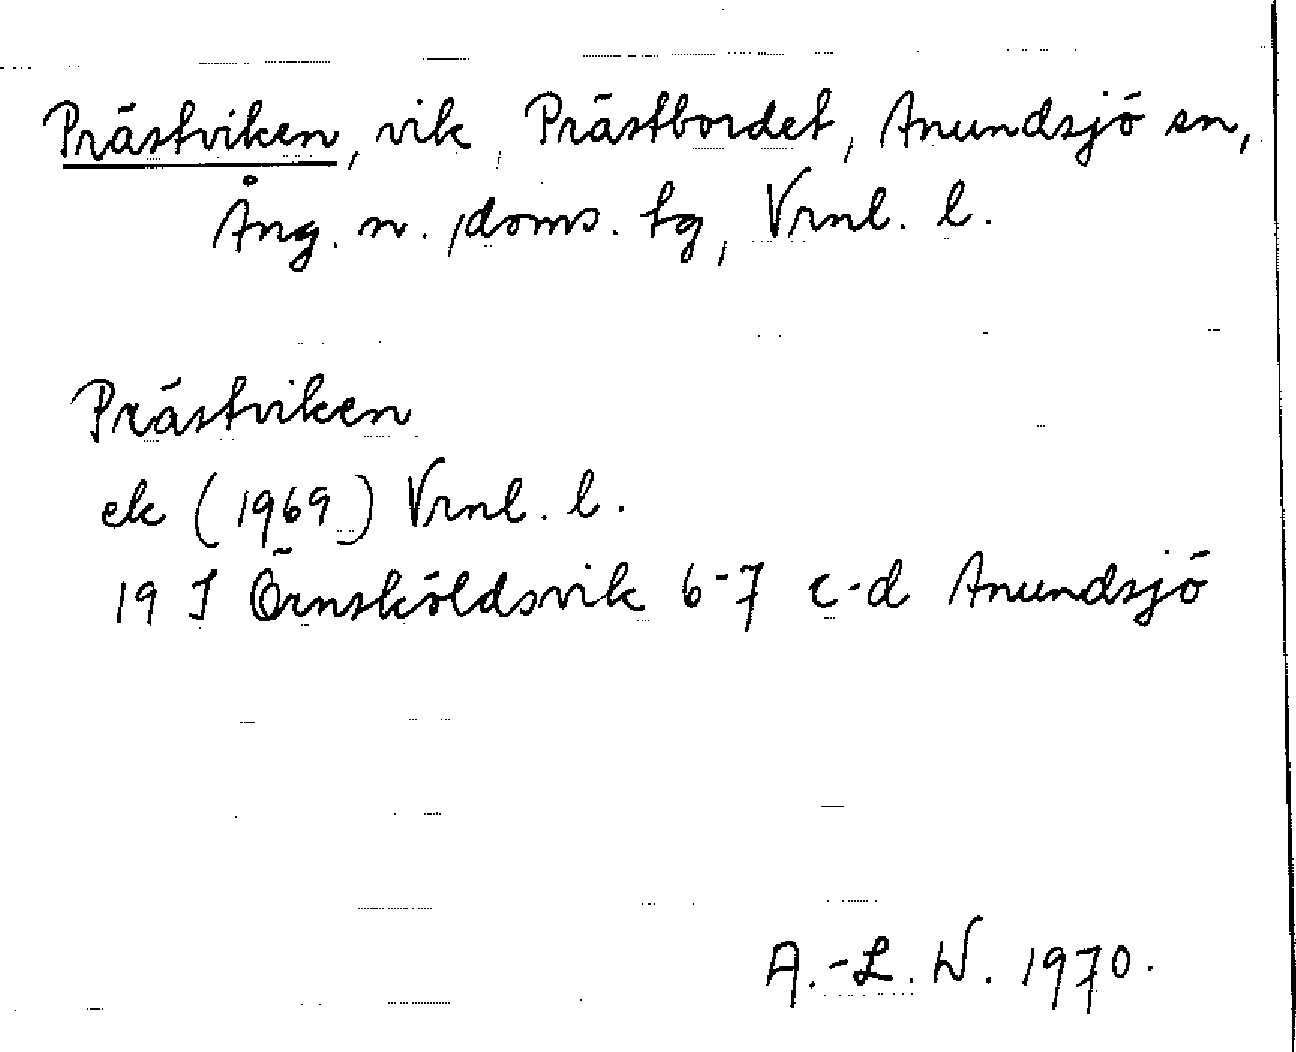 Prästviken, vik, Prästbordet, Anundsjö sn,
Ång. n. doms. tg, Vrnl. l.
Prästviken
ek (1969) Vrnl. l.
19 J Örnsköldsvik 6-7 c-d Anundsjö
A.-L. W. 1970.